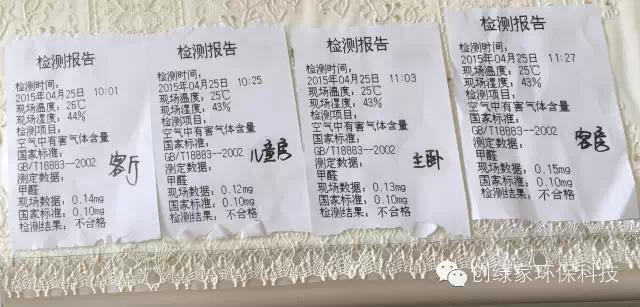 检测报告
检测时间：
2015年04月25日 10:01
现场温度：26℃
现场湿度：44%
检测项目：
空气中有害气体含量
国家标准：
GB/T18883--2002
测定数据：
甲醛
现场数据：0.14mg
国家标准：0.10mg
检测结果：不合格
客厅
检测报告
检测时间：
2015年04月25日 10:25
现场温度：25℃
现场湿度：43%
检测项目：
空气中有害气体含量
国家标准：
GB/T18883--2002
测定数据：
甲醛
现场数据：0.12mg
国家标准：0.10mg
检测结果：不合格
儿童房
检测报告
检测时间：
2015年04月25日 11:03
现场温度：25℃
现场湿度：43%
检测项目：
空气中有害气体含量
国家标准：
GB/T18883--2002
测定数据：
甲醛
现场数据：0.13mg
国家标准：0.10mg
检测结果：不合格
主卧
检测报告
检测时间：
2015年04月25日 11:27
现场温度：25℃
现场湿度：43%
检测项目：
空气中有害气体含量
国家标准：
GB/T18883--2002
测定数据：
甲醛
现场数据：0.15mg
国家标准：0.10mg
检测结果：不合格
客房
创绿家环保科技